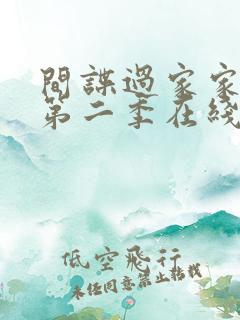 間諜過家家
第二季在綫
低空飛行
未任同意禁止轉載